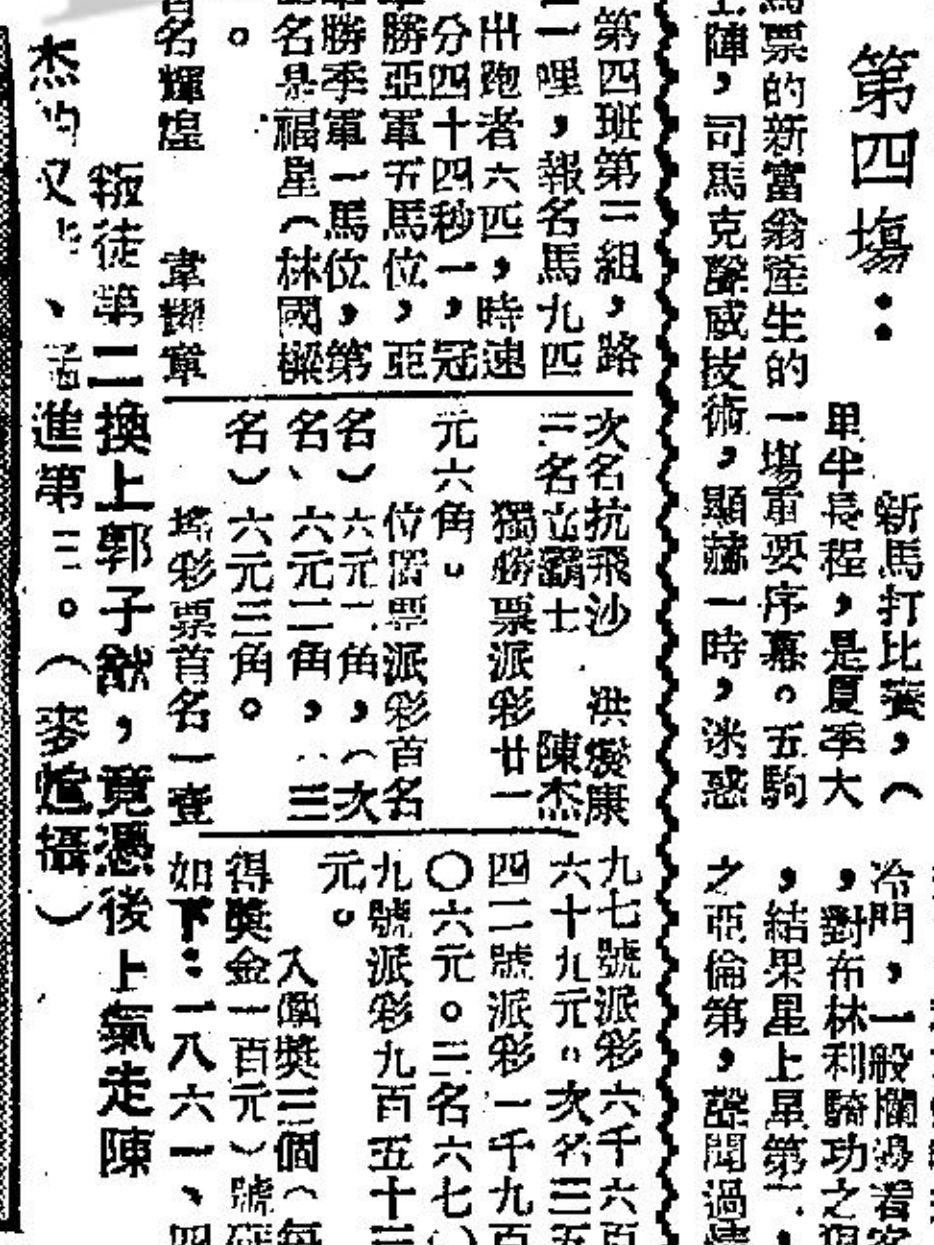 第四塲：
新馬打比賽，（
里半長程，是夏季大
馬票的新富翁產生的一塲重要序幕。五駒
陣，司馬克 威技術，顯赫一時，迷惑
冷門，一般欄邊看客
，對布林利騎功之
，結果星上星第 ，
之亞倫第， 聞過
第四班第三組，路
一哩，報名馬九匹
出跑者六匹，時速
分四十四秒一，冠
勝亞軍五馬位，亞
勝季軍一馬位，第
名是福星（林國樑
。
首名輝煌　韋耀章
次名抗飛沙　洪 康
三名立霸士　陳杰
獨勝票派彩廿一
元六角。
位置票派彩首名
名）六元二角，（次
名、六元二角， 三
名）六元三角。
搖彩票首名一壹
九七號派彩六千六百
六十九元。次名三五
四二號派彩一千九百
〇六元。三名六七〇
九號派彩九百五十三
元。
入圍獎三個（每
得獎金一百元）號碼
如下：一八六一、四
叛徒第二換上郭子猷，竟憑後上氣走陳
杰的 、孟進第三。（麥 攝）